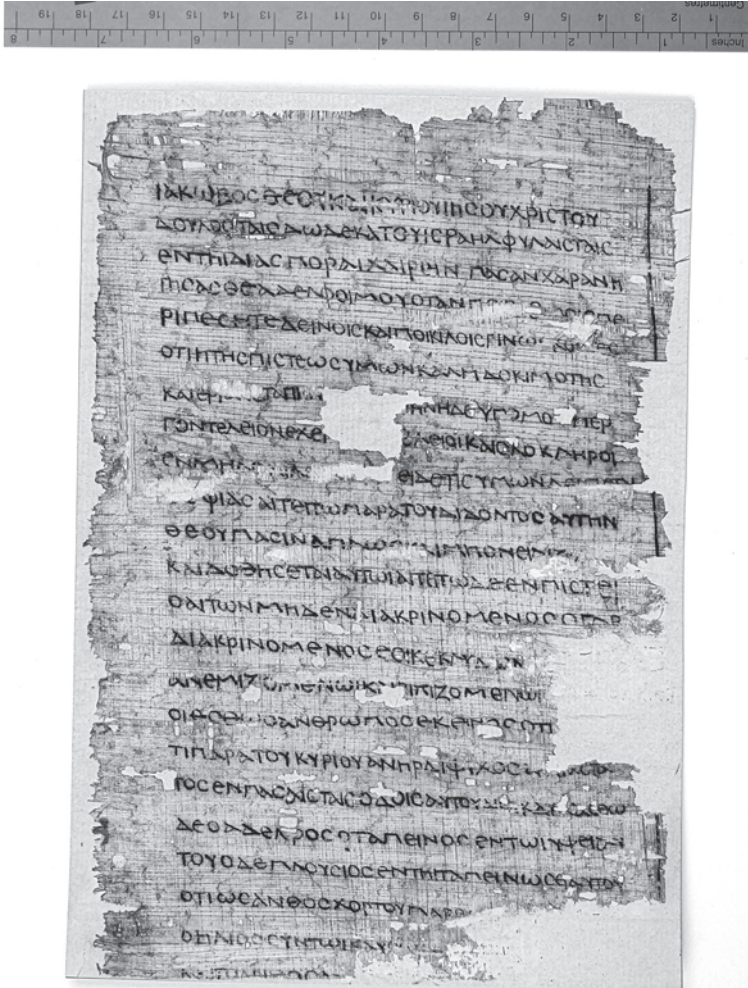 Centimetres
1 2 3 4 5 6 7 8 9 10 11 12 13 14 15 16 17 18 19
Inches 1 2 3 4 5 6 7 8
ΙΑΚΩΒΟϹΘΕΟΥΚΑΙΚΥΡΙΟΥΙΗϹΟΥΧΡΙϹΤΟΥ
ΔΟΥΛΟϹΤΑΙϹΔΩΔΕΚΑΤΟΥΙϹΡΑΗΛΦΥΛΑΙϹΤΑΙϹ
ΕΝΤΗΙΔΙΑϹΠΟΡΑΙΧΑΙΡΕΙΝΠΑϹΑΝΧΑΡΑΝΗ
ΓΗϹΑϹΘΕΑΔΕΛΦΟΙΜΟΥΟΤΑΝ
ΡΙΠΕϹΗΤΕΔΕΙΝΟΙϹΚΑΙΠΟΙΚΙΛΟΙϹΓΙΝΩ
ΟΤΙΗΤΗϹΠΙϹΤΕΩϹΥΜΩΝΚΑΛΗΔΟΚΙΜΟΤΗϹ
ΗΝΗΔΕΥΠΟΜΟ ΗΕΡ
ΓΟΝΤΕΛΕΙΟΝΕΧΕ ΛΕΙΟΙΚΑΙΟΛΟΚΛΗΡΟΙ
ΕΝΜΗΔ ΕΙΔΕΤΙϹΥΜΩΝΛΕΙΠΕΤΑΙ
ΦΙΑϹΑΙΤΕΙΤΩΠΑΡΑΤΟΥΔΙΔΟΝΤΟϹΑΥΤΗΝ
ΘΕΟΥΠΑϹΙΝΑΠΛΩϹΚΑΙΜΗΟΝΕΙΔΙΖ
ΚΑΙΔΟΘΗϹΕΤΑΙΑΥΤΩΙΑΙΤΕΙΤΩΔΕΕΝΠΙϹΤΕΙ
ΟΑΙΤΩΝΜΗΔΕΝΔΙΑΚΡΙΝΟΜΕΝΟϹΟΓΑΡ
ΔΙΑΚΡΙΝΟΜΕΝΟϹΕΟΙΚΕΚΛΥΔΩΝ
ΑΝΕΜΙΖΟΜΕΝΩΙΚΑΙΡΙΠΙΖΟΜΕΝΩΙ
ΟΙΕϹΘΩΟΑΝΘΡΩΠΟϹΕΚΕΙΝΟϹΟΤΙ
ΤΙΠΑΡΑΤΟΥΚΥΡΙΟΥΑΝΗΡΔΙΨΥΧΟϹ
ΤΟϹΕΝΠΑϹΑΙϹΤΑΙϹΟΔΟΙϹΑΥΤΟΥ ΚΑΥΧΑϹΘΩ
ΔΕΟΑΔΕΛΦΟϹΟΤΑΠΕΙΝΟϹΕΝΤΩΙΥΨΕΙΑΥ
ΤΟΥΟΔΕΠΛΟΥϹΙΟϹΕΝΤΗΙΤΑΠΕΙΝΩϹΕΙΑΥΤΟΥ
ΟΤΙΩϹΑΝΘΟϹΧΟΡΤΟΥΠΑΡΕ
ΟΗΛΙΟϹϹΥΝΤΩΙΚΑΥ